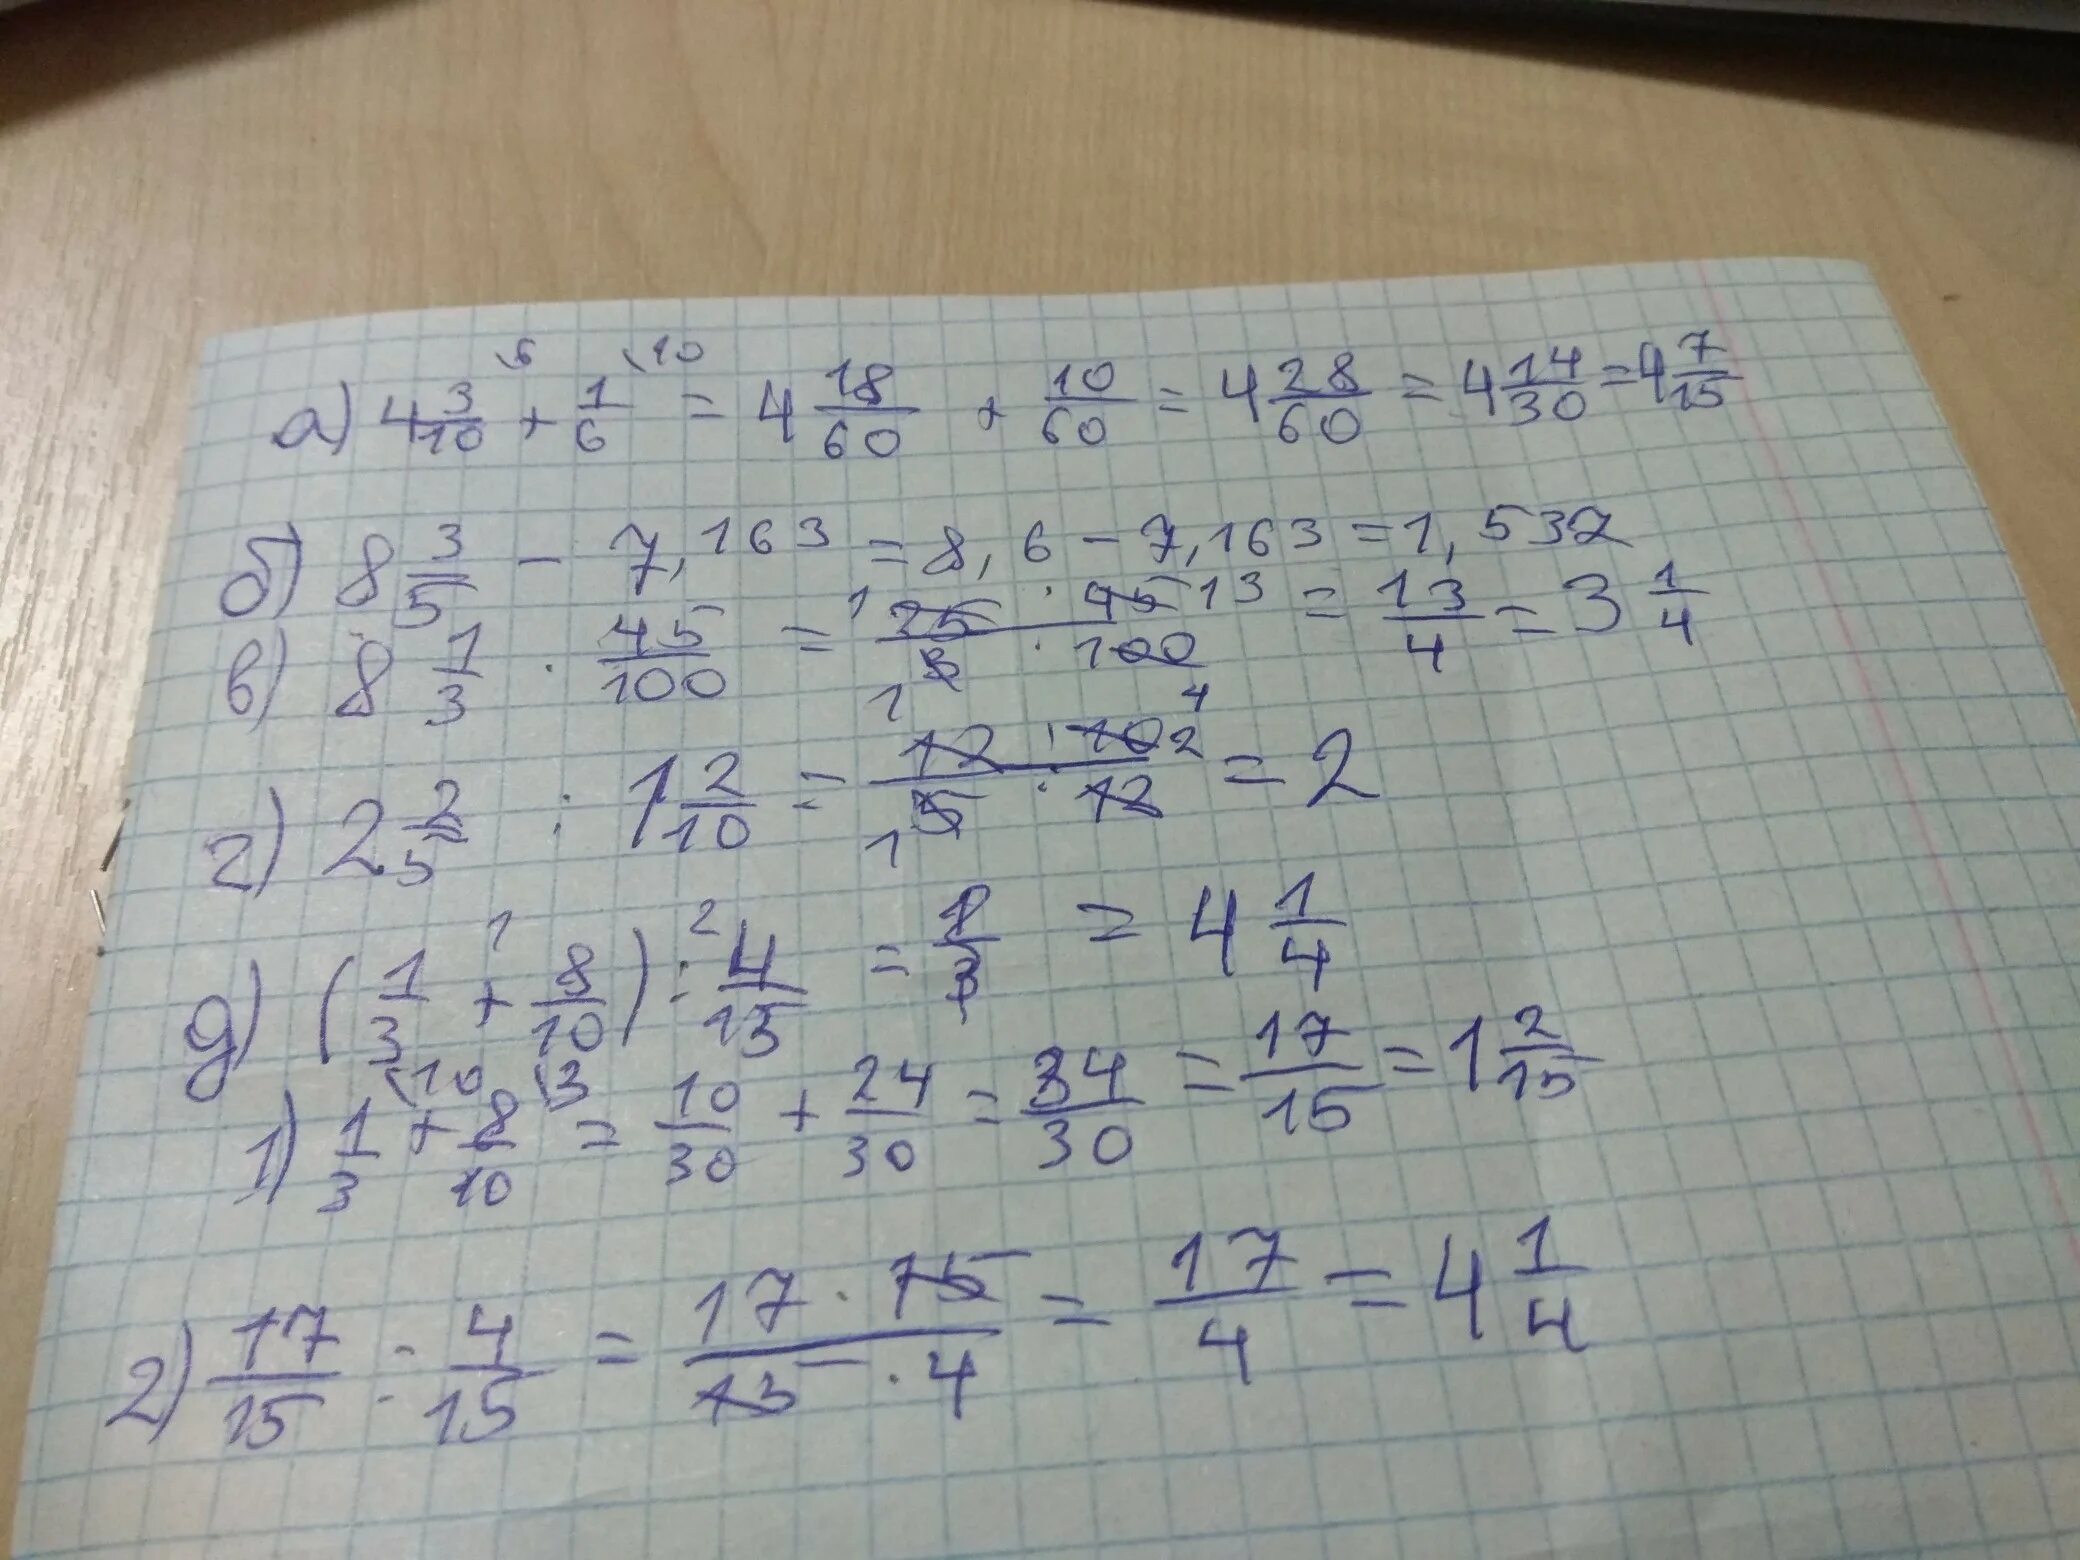 а) 4 3/10 \6 + 1/6 \10 = 4 18/60 + 10/60 = 4 28/60 = 4 14/30 = 4 7/15
б) 8 3/5 - 7,163 = 8,6 - 7,163 = 1,537
в) 8 1/3 · 45/100 = 1 25 · 45 13 / 1 3 · 100 4 = 13/4 = 3 1/4
г) 2 2/5 : 1 2/10 = 12 · 10 2 / 1 5 · 12 = 2
1 2
д) (1/3 + 8/10) : 4/15 = = 4 1/4
1) 1/3 \10 + 8/10 \3 = 10/30 + 24/30 = 34/30 = 17/15 = 1 2/15
2) 17/15 : 4/15 = 17 · 15 / 15 · 4 = 17/4 = 4 1/4